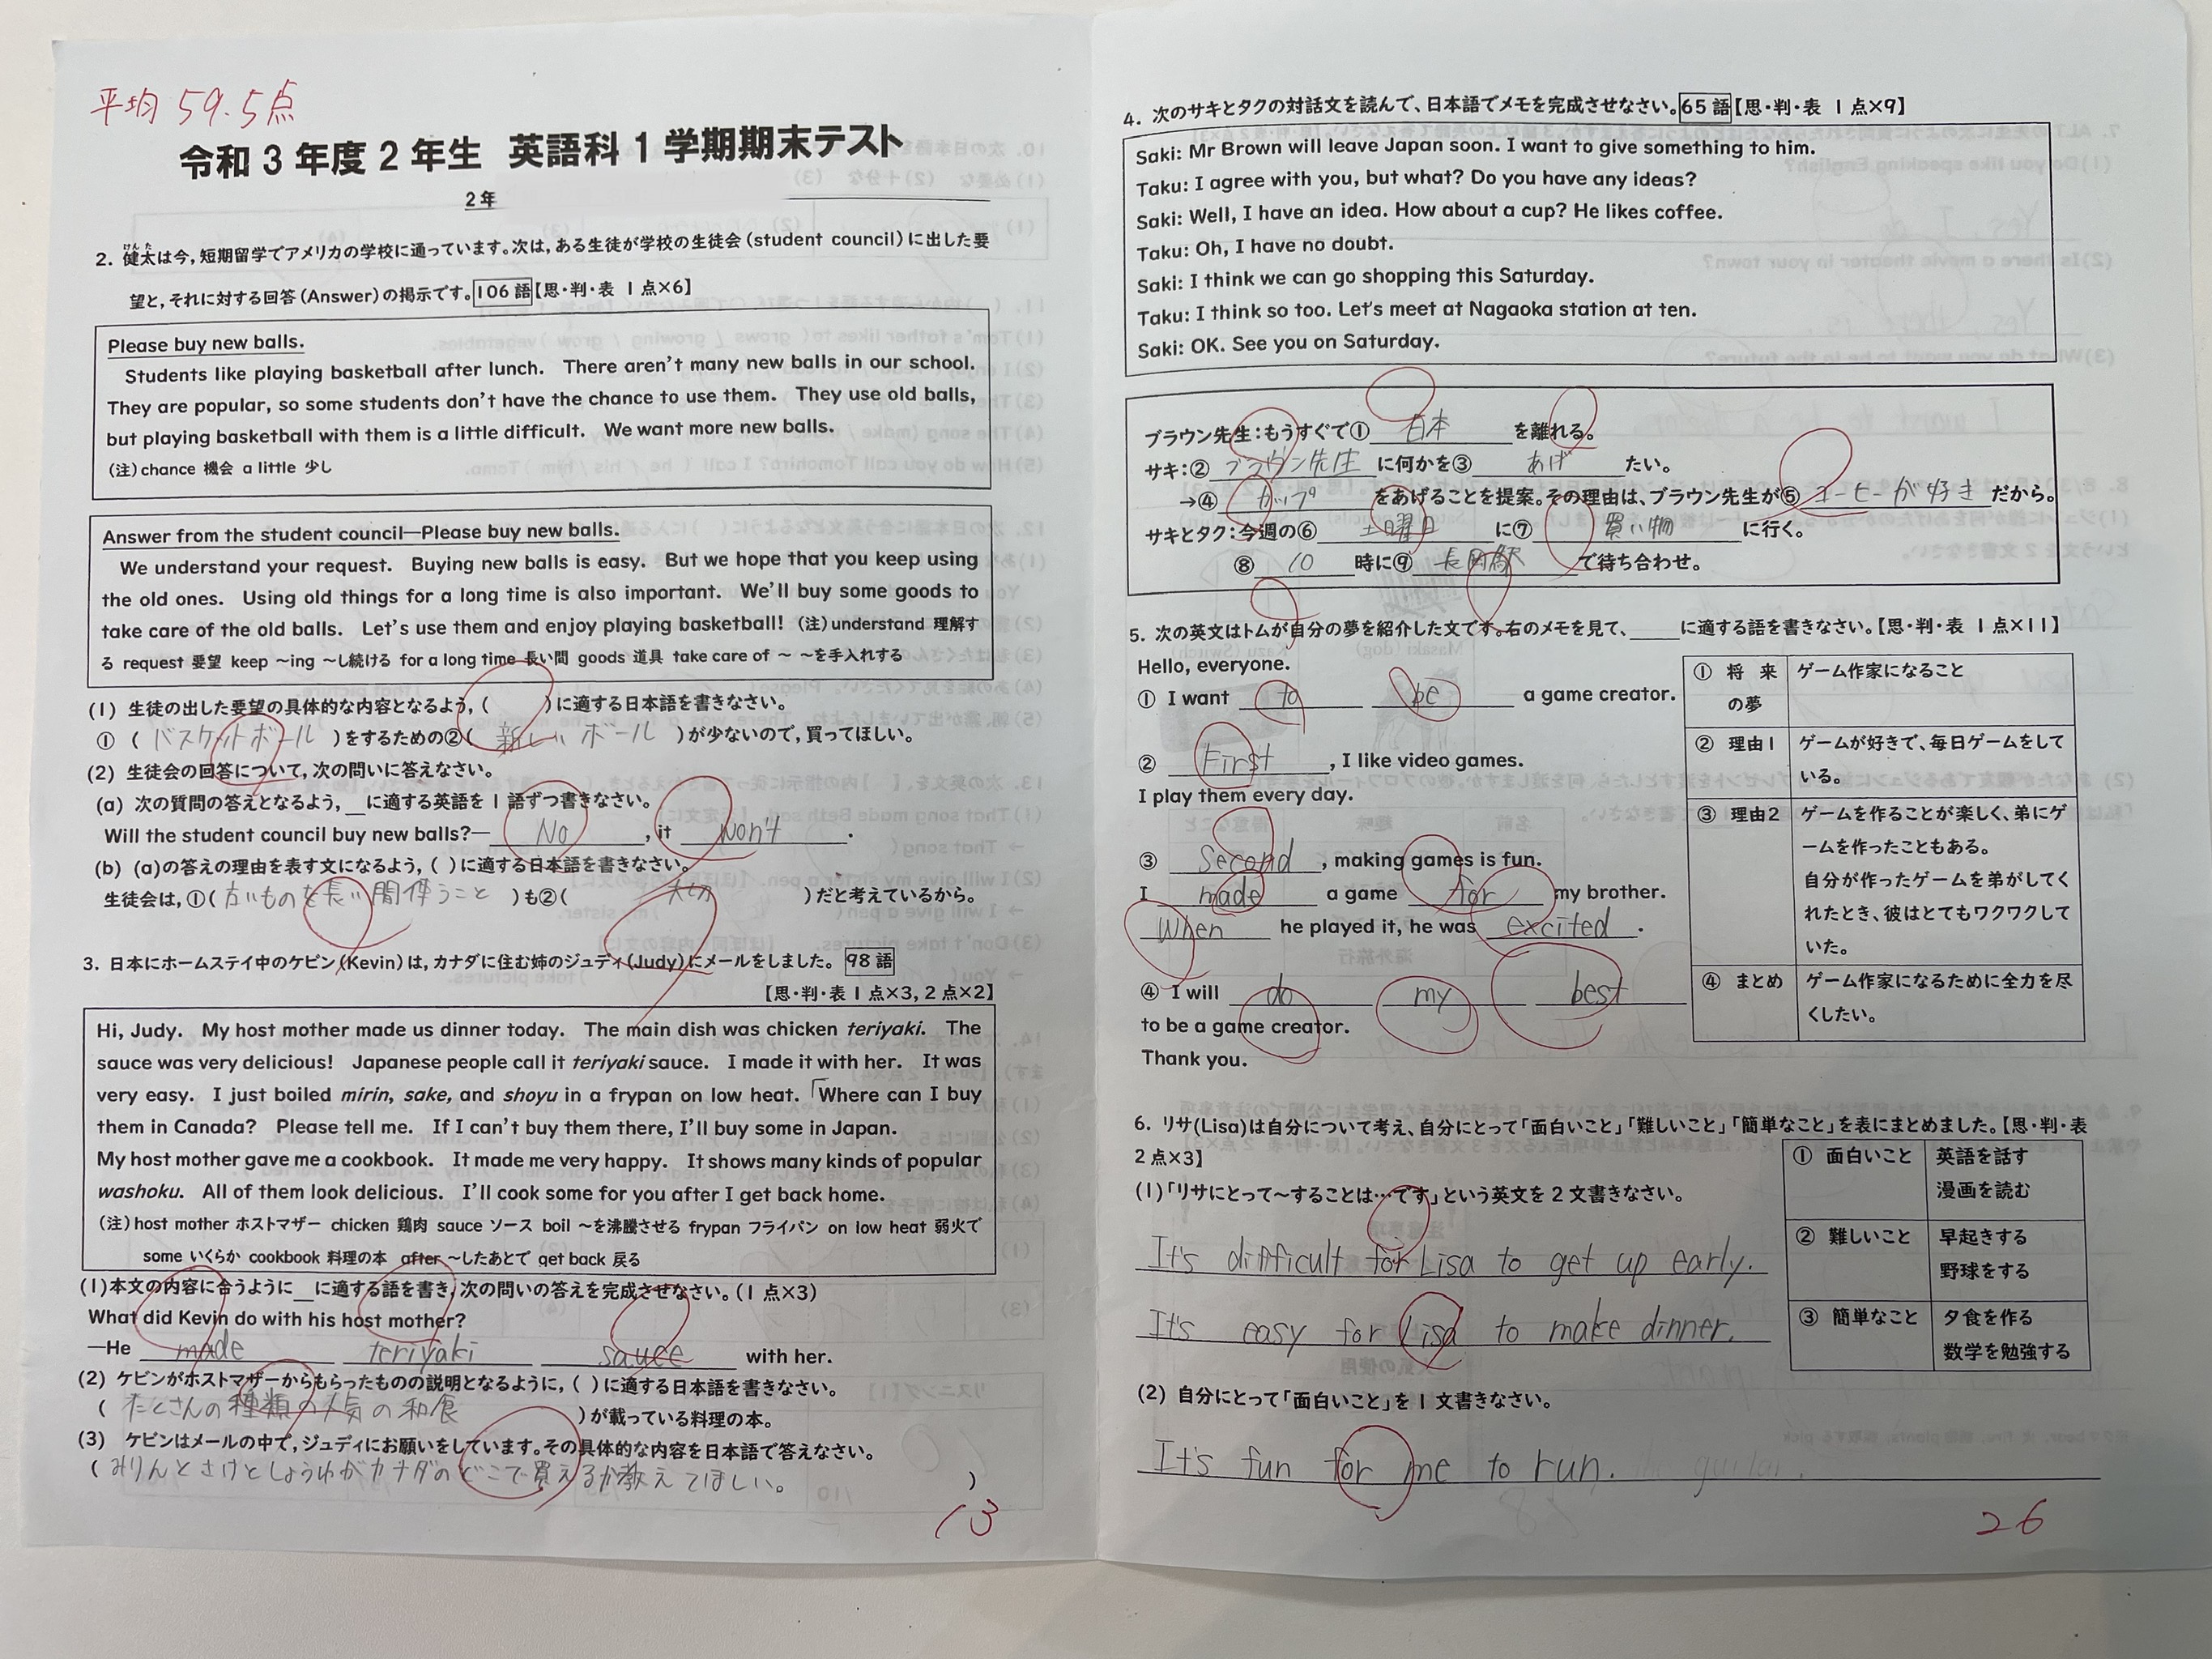 平均 59.5点
令和3年度2年生 英語科1学期期末テスト
2年
2. 健太は今,短期留学でアメリカの学校に通っています。次は,ある生徒が学校の生徒会(student council)に出した要
けんた
望と,それに対する回答(Answer)の掲示です。106語【思・判・表 1点×6】
Please buy new balls.
Students like playing basketball after lunch. There aren't many new balls in our school.
They are popular, so some students don't have the chance to use them. They use old balls,
but playing basketball with them is a little difficult. We want more new balls.
(注)chance 機会 a little 少し
Answer from the student council—Please buy new balls.
We understand your request. Buying new balls is easy. But we hope that you keep using
the old ones. Using old things for a long time is also important. We'll buy some goods to
take care of the old balls. Let's use them and enjoy playing basketball! (注)understand 理解す
る request 要望 keep ~ing ~し続ける for a long time 長い間 goods 道具 take care of ~ ~を手入れする
(1) 生徒の出した要望の具体的な内容となるよう,( )に適する日本語を書きなさい。
① ( バスケットボール )をするための②( 新しいボール )が少ないので,買ってほしい。
(2) 生徒会の回答について,次の問いに答えなさい。
(a) 次の質問の答えとなるよう,__に適する英語を1語ずつ書きなさい。
Will the student council buy new balls?— No , it won't .
(b) (a)の答えの理由を表す文になるよう,( )に適する日本語を書きなさい。
生徒会は,①( 古いものを長い間使うこと )も②( 大切 )だと考えているから。
3. 日本にホームステイ中のケビン(Kevin)は,カナダに住む姉のジュディ(Judy)にメールをしました。 98語
【思・判・表1点×3,2点×2】
Hi, Judy. My host mother made us dinner today. The main dish was chicken teriyaki. The
sauce was very delicious! Japanese people call it teriyaki sauce. I made it with her. It was
very easy. I just boiled mirin, sake, and shoyu in a frypan on low heat. 「Where can I buy
them in Canada? Please tell me. If I can't buy them there, I'll buy some in Japan.
My host mother gave me a cookbook. It made me very happy. It shows many kinds of popular
washoku. All of them look delicious. I'll cook some for you after I get back home.
(注)host mother ホストマザー chicken 鶏肉 sauce ソース boil ~を沸騰させる frypan フライパン on low heat 弱火で
some いくらか cookbook 料理の本 after ~したあとで get back 戻る
(1)本文の内容に合うように__に適する語を書き,次の問いの答えを完成させなさい。(1点×3)
What did Kevin do with his host mother?
—He made teriyaki sauce with her.
(2) ケビンがホストマザーからもらったものの説明となるように,( )に適する日本語を書きなさい。
( たくさんの種類の人気の和食 )が載っている料理の本。
(3) ケビンはメールの中で,ジュディにお願いをしています。その具体的な内容を日本語で答えなさい。
( みりんとさけとしょうゆがカナダのどこで買えるか教えてほしい。 )
13
4. 次のサキとタクの対話文を読んで、日本語でメモを完成させなさい。65語【思・判・表 1点×9】
Saki: Mr Brown will leave Japan soon. I want to give something to him.
Taku: I agree with you, but what? Do you have any ideas?
Saki: Well, I have an idea. How about a cup? He likes coffee.
Taku: Oh, I have no doubt.
Saki: I think we can go shopping this Saturday.
Taku: I think so too. Let's meet at Nagaoka station at ten.
Saki: OK. See you on Saturday.
ブラウン先生:もうすぐで① 日本 を離れる。
サキ:② ブラウン先生 に何かを③ あげ たい。
→④ カップ をあげることを提案。その理由は、ブラウン先生が⑤ コーヒーが好き だから。
サキとタク:今週の⑥ 土曜日 に⑦ 買い物 に行く。
⑧ 10 時に⑨ 長岡駅 で待ち合わせ。
5. 次の英文はトムが自分の夢を紹介した文です。右のメモを見て、____に適する語を書きなさい。【思・判・表 1点×11】
Hello, everyone.
① I want to be a game creator.
② First , I like video games.
I play them every day.
③ Second , making games is fun.
I made a game for my brother.
When he played it, he was excited .
④ I will do my best
to be a game creator.
Thank you.
① 将来の夢 ゲーム作家になること
② 理由1 ゲームが好きで、毎日ゲームをして
いる。
③ 理由2 ゲームを作ることが楽しく、弟にゲ
ームを作ったこともある。
自分が作ったゲームを弟がしてく
れたとき、彼はとてもワクワクして
いた。
④ まとめ ゲーム作家になるために全力を尽
くしたい。
6. リサ(Lisa)は自分について考え、自分にとって「面白いこと」「難しいこと」「簡単なこと」を表にまとめました。【思・判・表
2点×3】
(1)「リサにとって~することは…です」という英文を2文書きなさい。
It's difficult for Lisa to get up early.
It's easy for Lisa to make dinner.
① 面白いこと 英語を話す
漫画を読む
② 難しいこと 早起きする
野球をする
③ 簡単なこと 夕食を作る
数学を勉強する
(2) 自分にとって「面白いこと」を1文書きなさい。
It's fun for me to run.
26